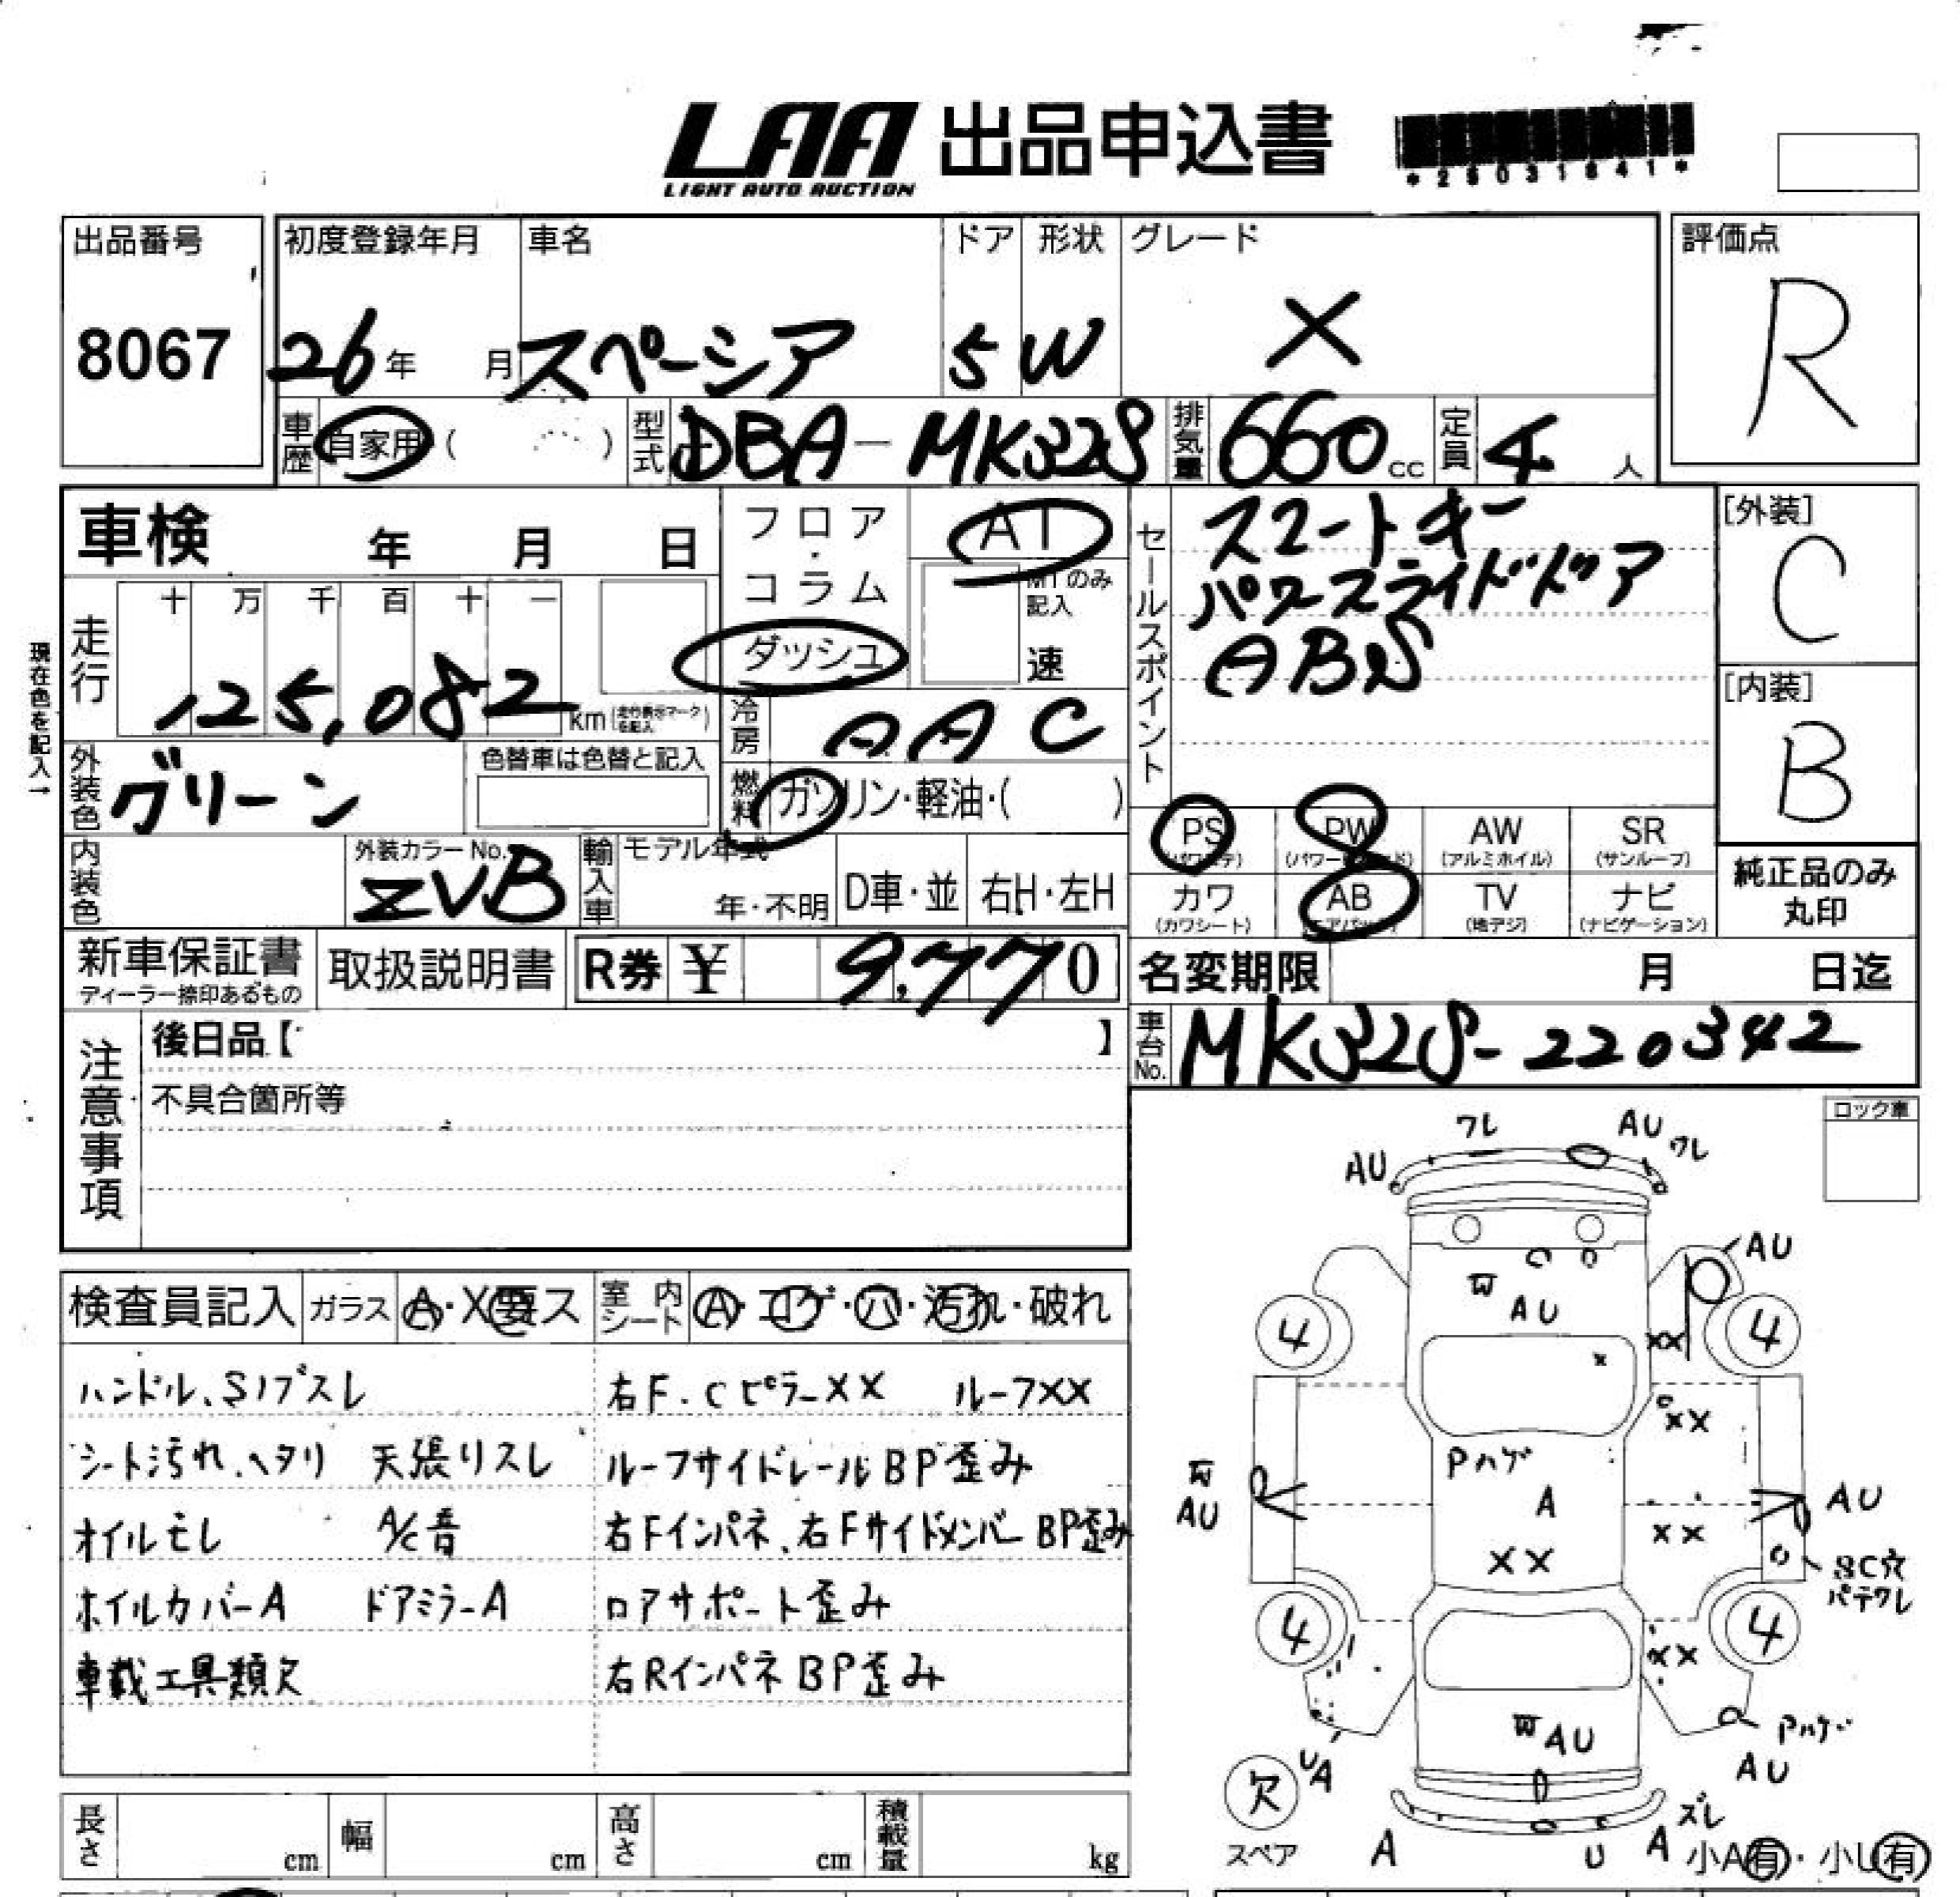 LAA 出品申込書
LIGHT AUTO AUCTION
出品番号 初度登録年月 車名 ドア 形状 グレード 評価点
8067 26年 月 スペーシア 5 W X R
車歴 自家用 ( ) 型式 DBA-MK32S 排気量 660cc 定員 4人
車検 年 月 日
フロア・コラム
ダッシュ
AT
MTのみ記入
速
セールスポイント
スマートキー
パワースライドドア
ABS
[外装]
C
[内装]
B
現在色を記入→
走行 十 万 千 百 十 一
125,082 km(走行表示マークを記入)
冷房 AAC
外装色 グリーン 色替車は色替と記入
燃料 ガソリン・軽油・( )
PS PW AW SR
(パワステ) (パワーウインド) (アルミホイル) (サンルーフ)
カワ AB TV ナビ
(カワシート) (エアバック) (地デジ) (ナビゲーション)
純正品のみ
丸印
内装色 外装カラーNo. ZVB 輸入車 モデル年式 年・不明 D車・並 右H・左H
新車保証書 取扱説明書 R券 ¥ 9,770
ディーラー捺印あるもの
名変期限 月 日迄
車台No. MK32S-220342
注意事項
後日品【 】
不具合箇所等
ロック車
検査員記入 ガラス A・X要ス 室内シート A・コゲ・ハ・汚れ・破れ
ハンドル、Sノブスレ 右F.Cピラーxx ルーフxx
シート汚れ、ヘタリ 天張りスレ ルーフサイドレールBP歪み
オイルモレ A/C音 右Fインパネ、右FサイドメンバーBP歪み
ホイルカバーA ドアミラーA ロアサポート歪み
車載工具類欠 右RインパネBP歪み
ワレ AU
AU ワレ
AU
W
AU
4 xx 4
xx
Pハゲ
W
AU
A
AU
xx
XX
SC穴
パテワレ
4 4
xx
W AU
Pハゲ
AU
UA
欠
スペア
ズレ
A U A
小A有・小U有
長さ cm 幅 cm 高さ cm 積載量 kg